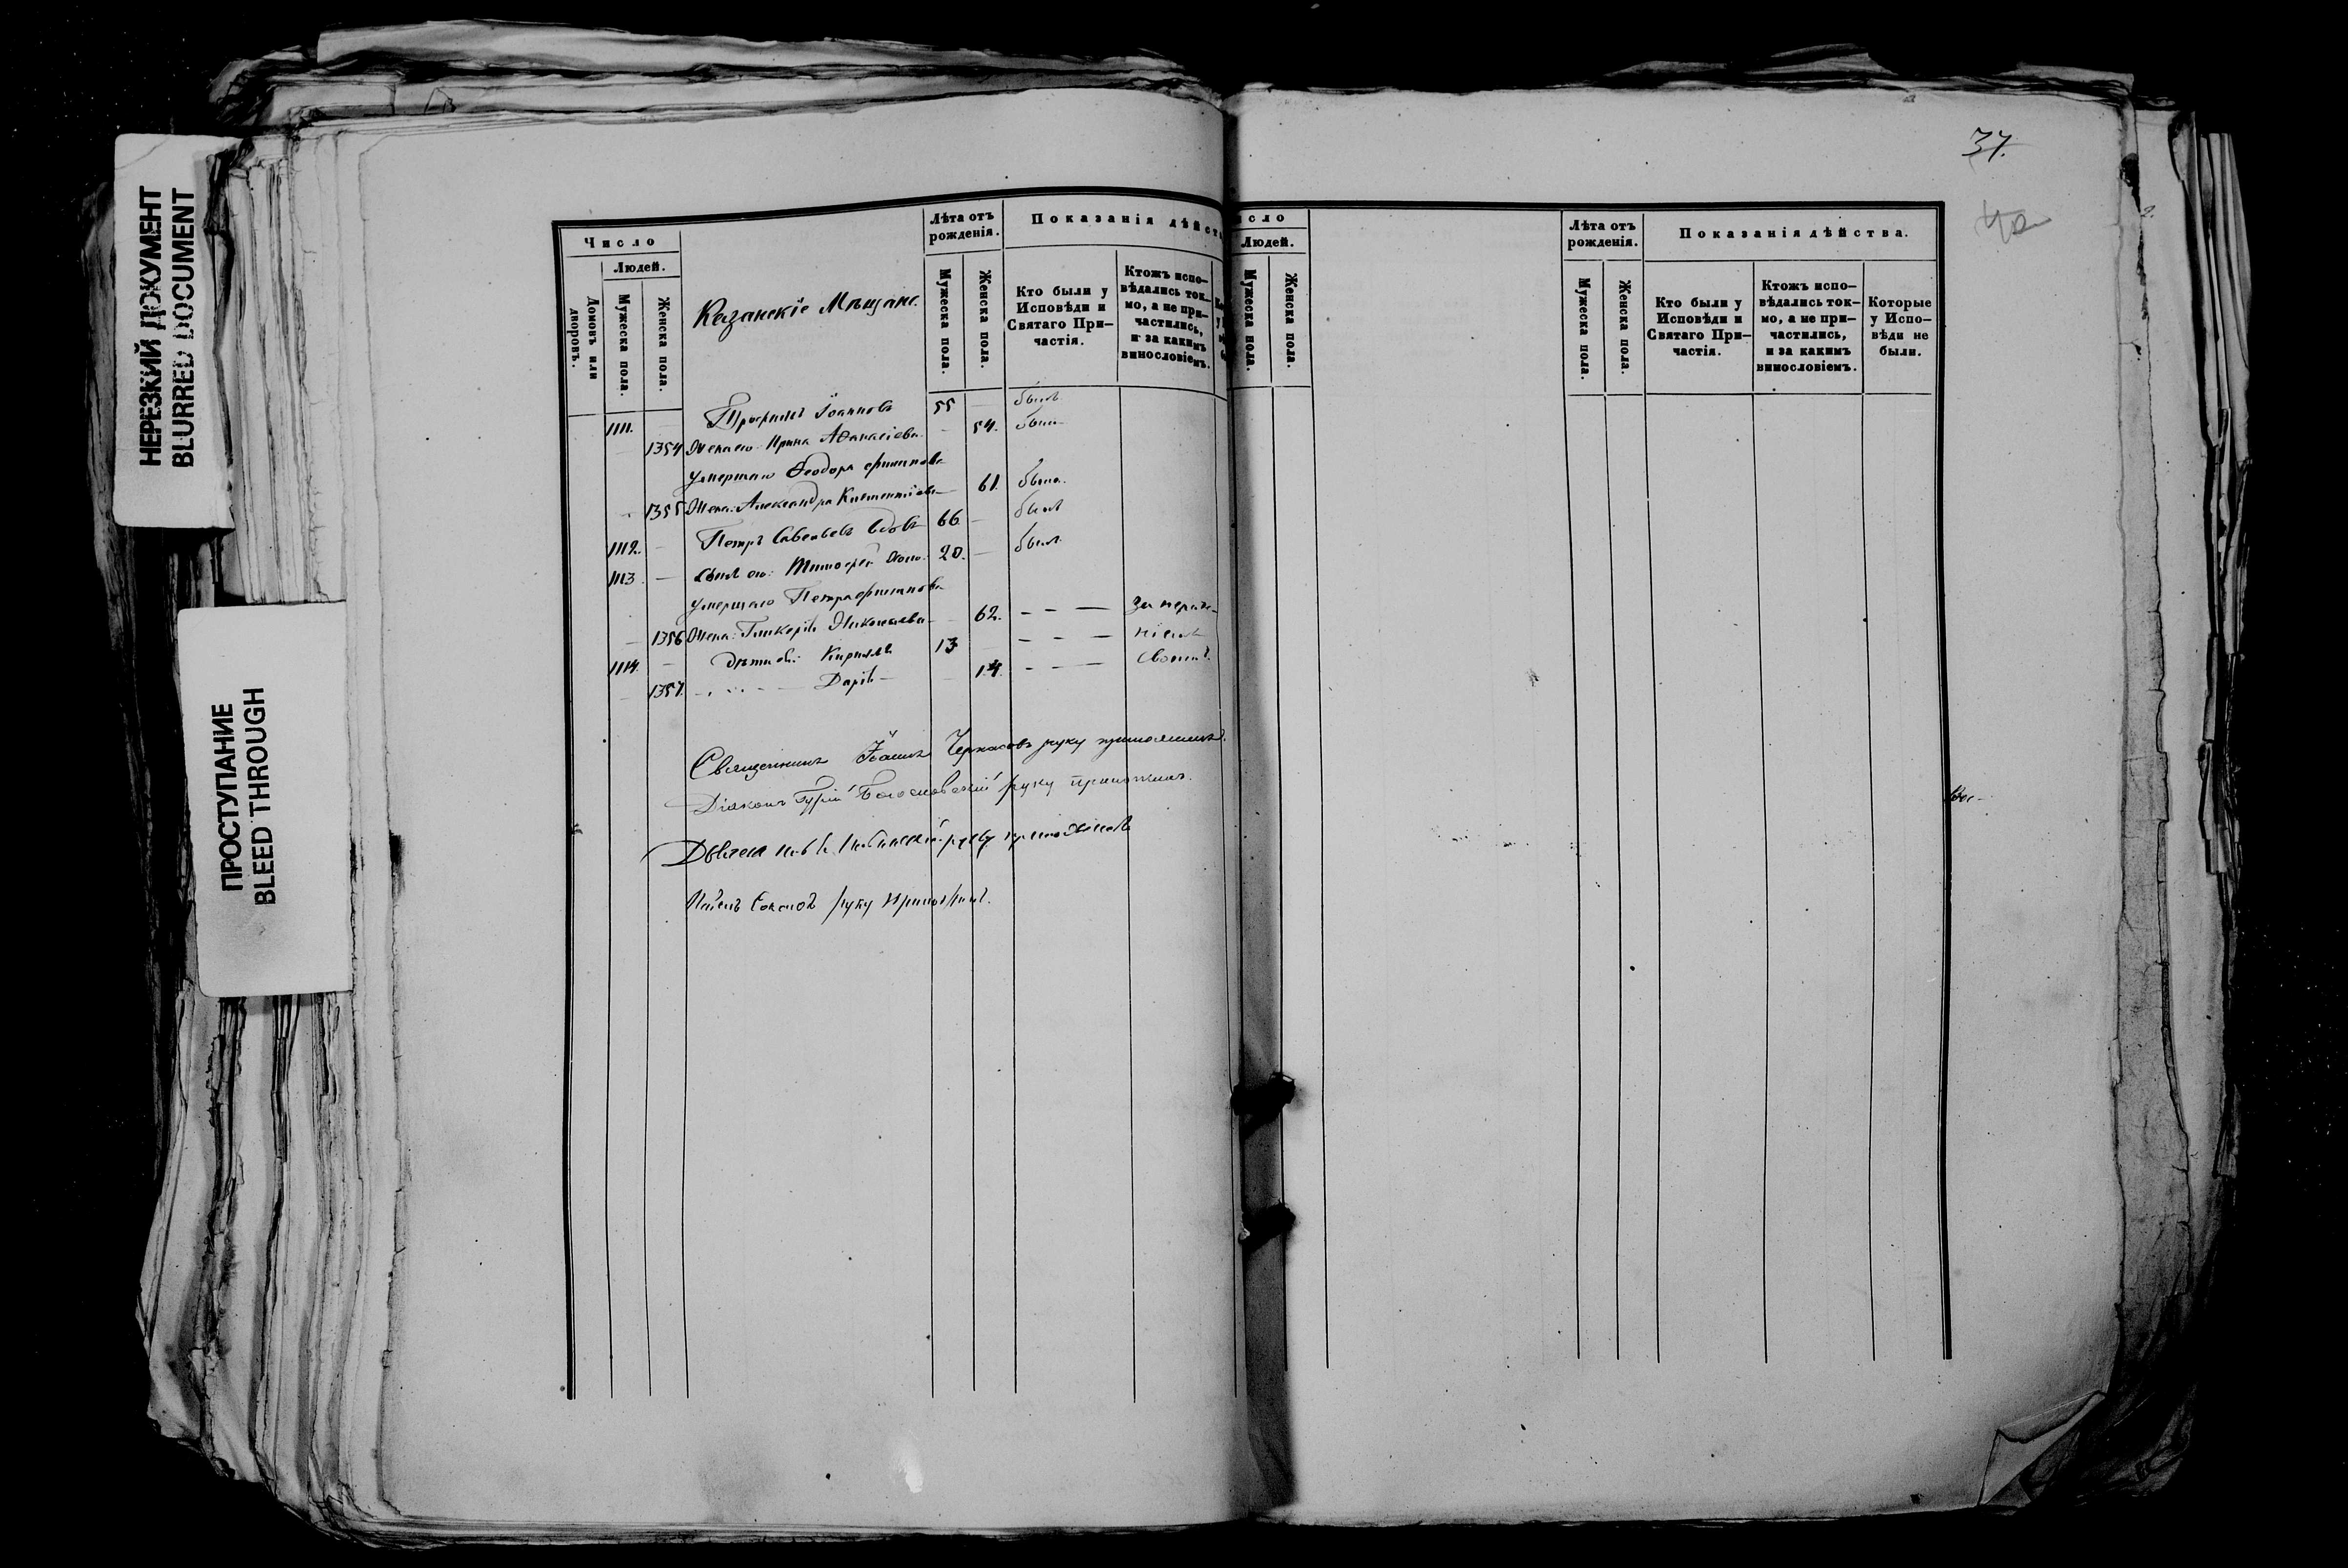 НЕРЕЗКИЙ ДОКУМЕНТ
BLURRED DOCUMENT
ПРОСТУПАНИЕ
BLEED THROUGH
Число
Людей.
Домовъ или дворовъ.
Мужеска пола.
Женска пола.
Казанскіе Мѣщане.
Лѣта отъ рожденія.
Мужеска пола.
Женска пола.
Показанія дѣйст
Кто были у Исповѣди и Святаго При-частія.
Ктожъ испо-вѣдались ток-мо, а не при-частились, и за какимъ винословіемъ.
1111. Трофимъ Іоанновъ 55 былъ
1354 Жена его Ирина Аѳанасіева 54. была
умершаго Ѳеодора
1355 Жена: Александра 61. была
1112. Петръ Савельевъ вдовъ 66 былъ
1113. Сынъ его: Тимофей 20. былъ
умершаго Петра
1356 Жена: Гликерія 62. за нераде-
1114. Дѣти ея: Кириллъ 13 ніемъ
1357. Дарія 14. своимъ.
Священникъ Іоаннъ Черкасовъ руку приложилъ.
Діаконъ Гурій Богословскій руку приложилъ.
руку приложилъ
руку приложилъ.
37.
исло
Людей.
Мужеска пола.
Женска пола.
Лѣта отъ рожденія.
Мужеска пола.
Женска пола.
Показанія дѣйства.
Кто были у Исповѣди и Святаго При-частія.
Ктожъ испо-вѣдались ток-мо, а не при-частились, и за какимъ винословіемъ.
Которые у Испо-вѣди не были.